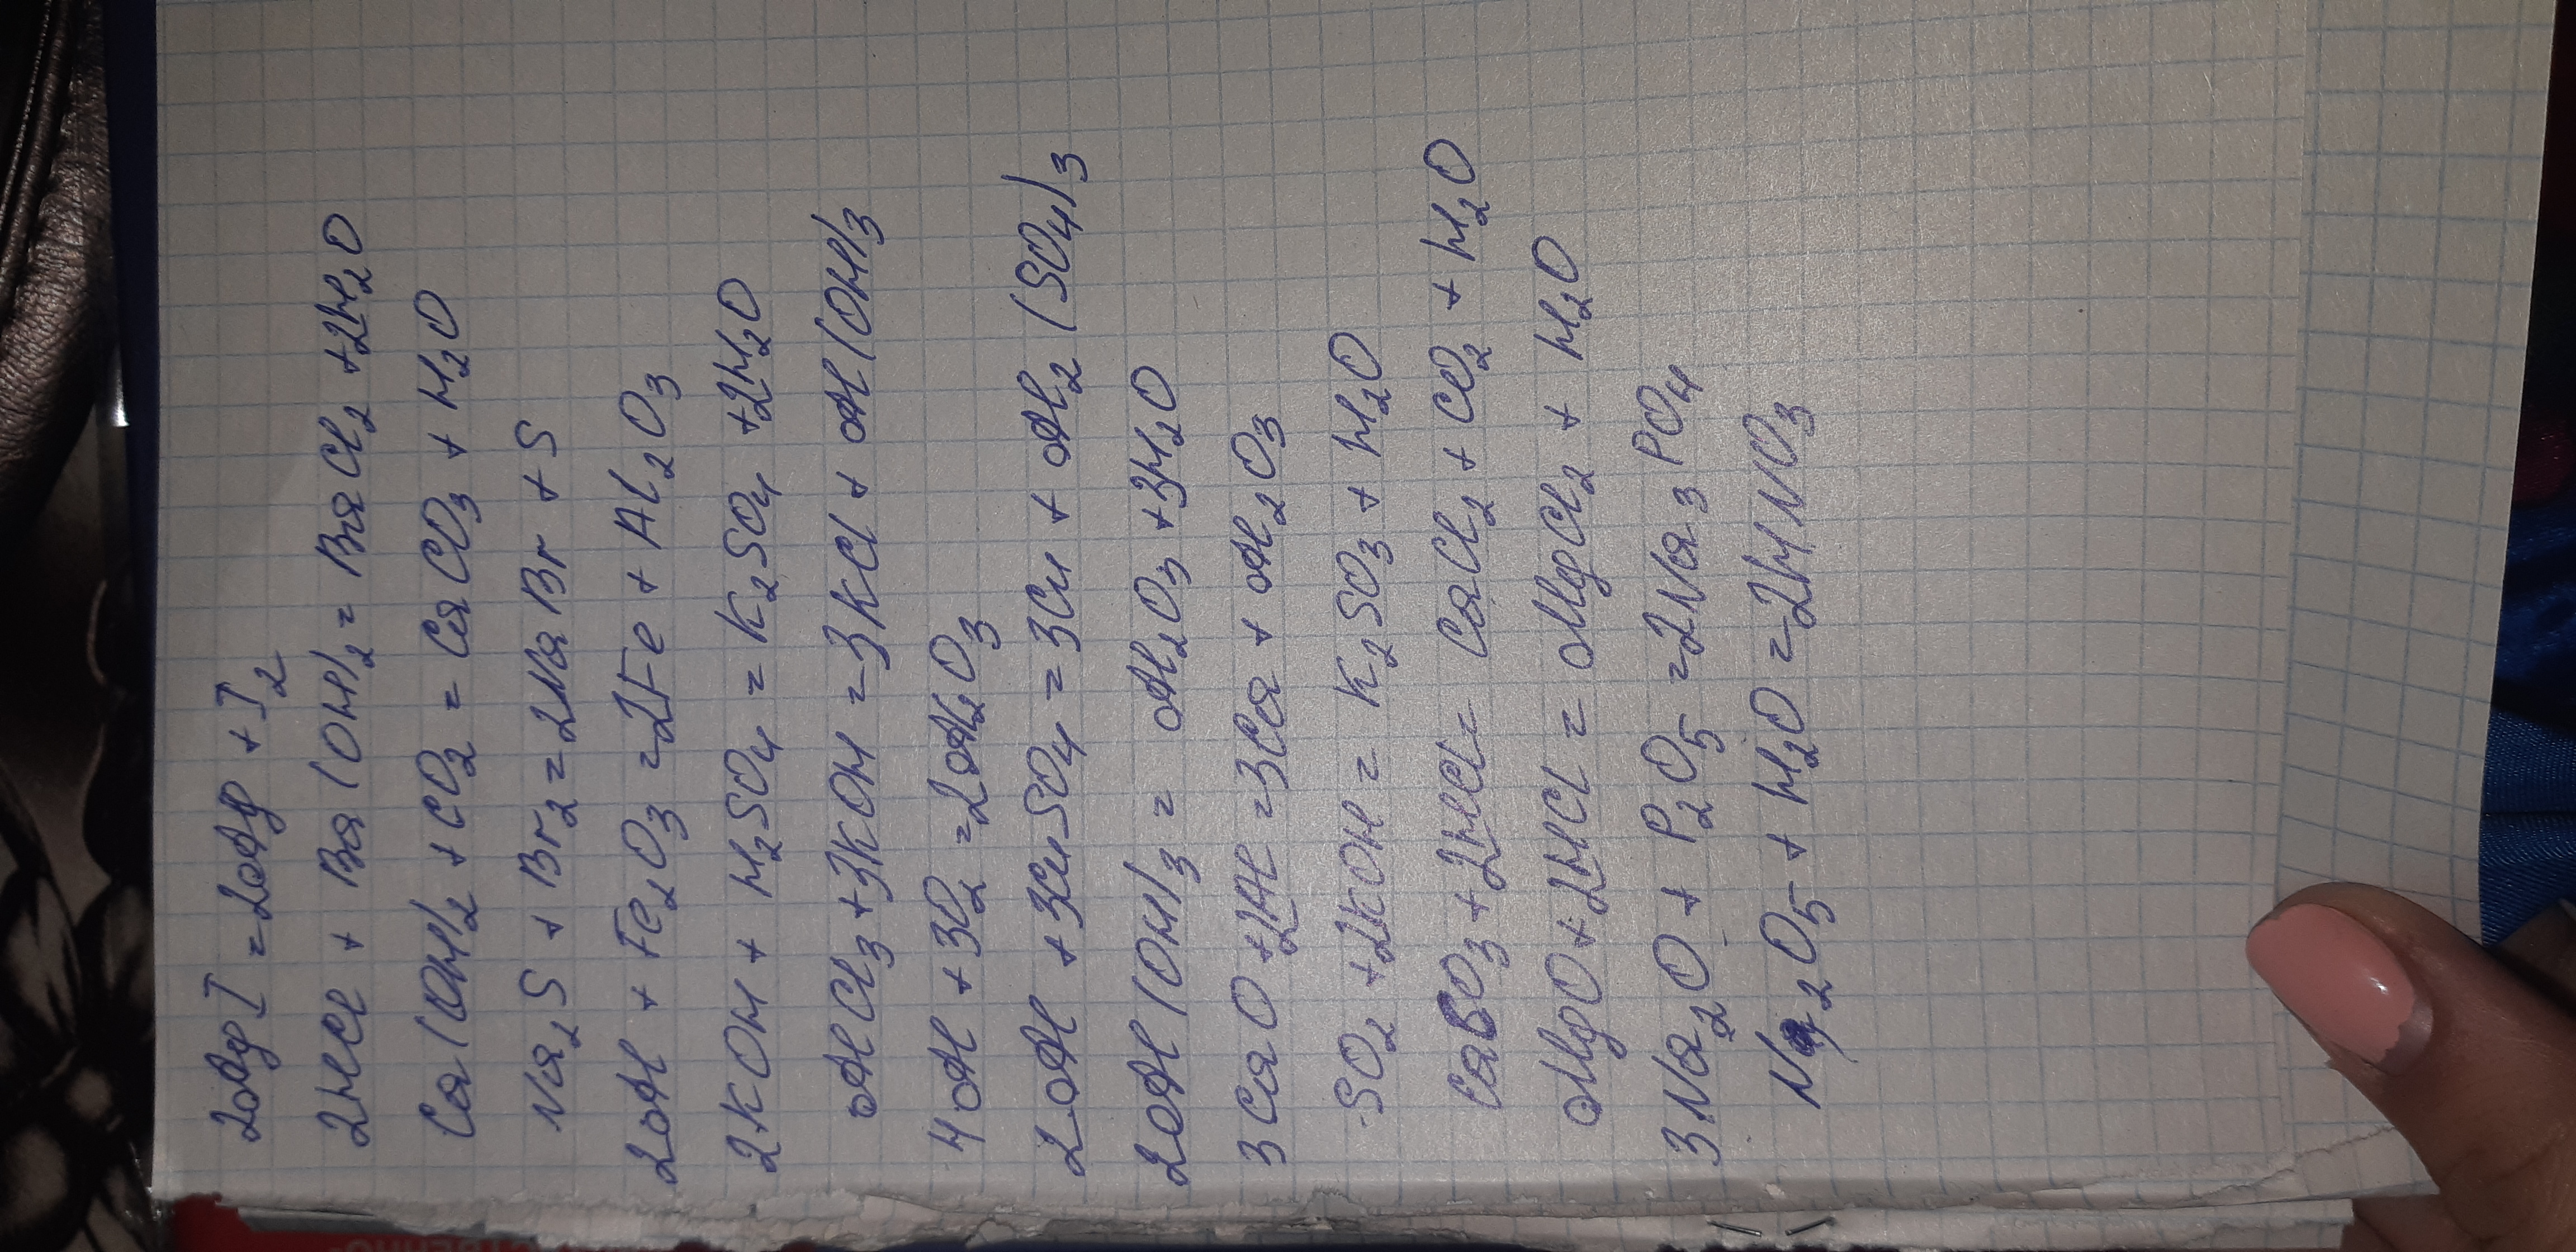 2AgI = 2Ag + I2
2HCl + Ba(OH)2 = BaCl2 + 2H2O
Ca(OH)2 + CO2 = CaCO3 + H2O
Na2S + Br2 = 2NaBr + S
2Al + Fe2O3 = 2Fe + Al2O3
2KOH + H2SO4 = K2SO4 + 2H2O
AlCl3 + 3KOH = 3KCl + Al(OH)3
4Al + 3O2 = 2Al2O3
2Al + 3CuSO4 = 3Cu + Al2(SO4)3
2Al(OH)3 = Al2O3 + 3H2O
3CaO + 2Al = 3Ca + Al2O3
SO2 + 2KOH = K2SO3 + H2O
CaCO3 + 2HCl = CaCl2 + CO2 + H2O
MgO + 2HCl = MgCl2 + H2O
3Na2O + P2O5 = 2Na3PO4
N2O5 + H2O = 2HNO3